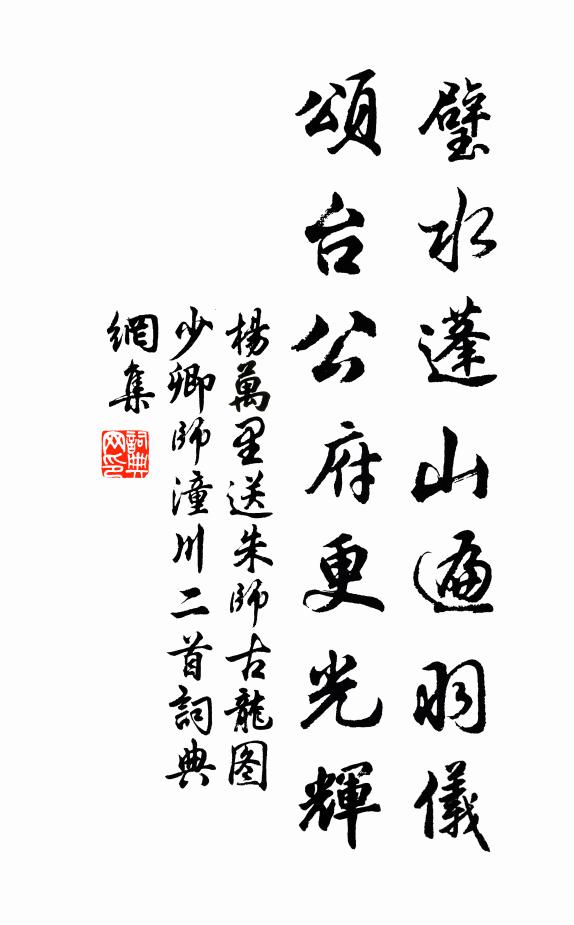 璧水蓬山遍羽儀
頌台公府更光輝
楊萬里送朱師古龍图
少卿師潼川二首詞典
網集
詞典網印